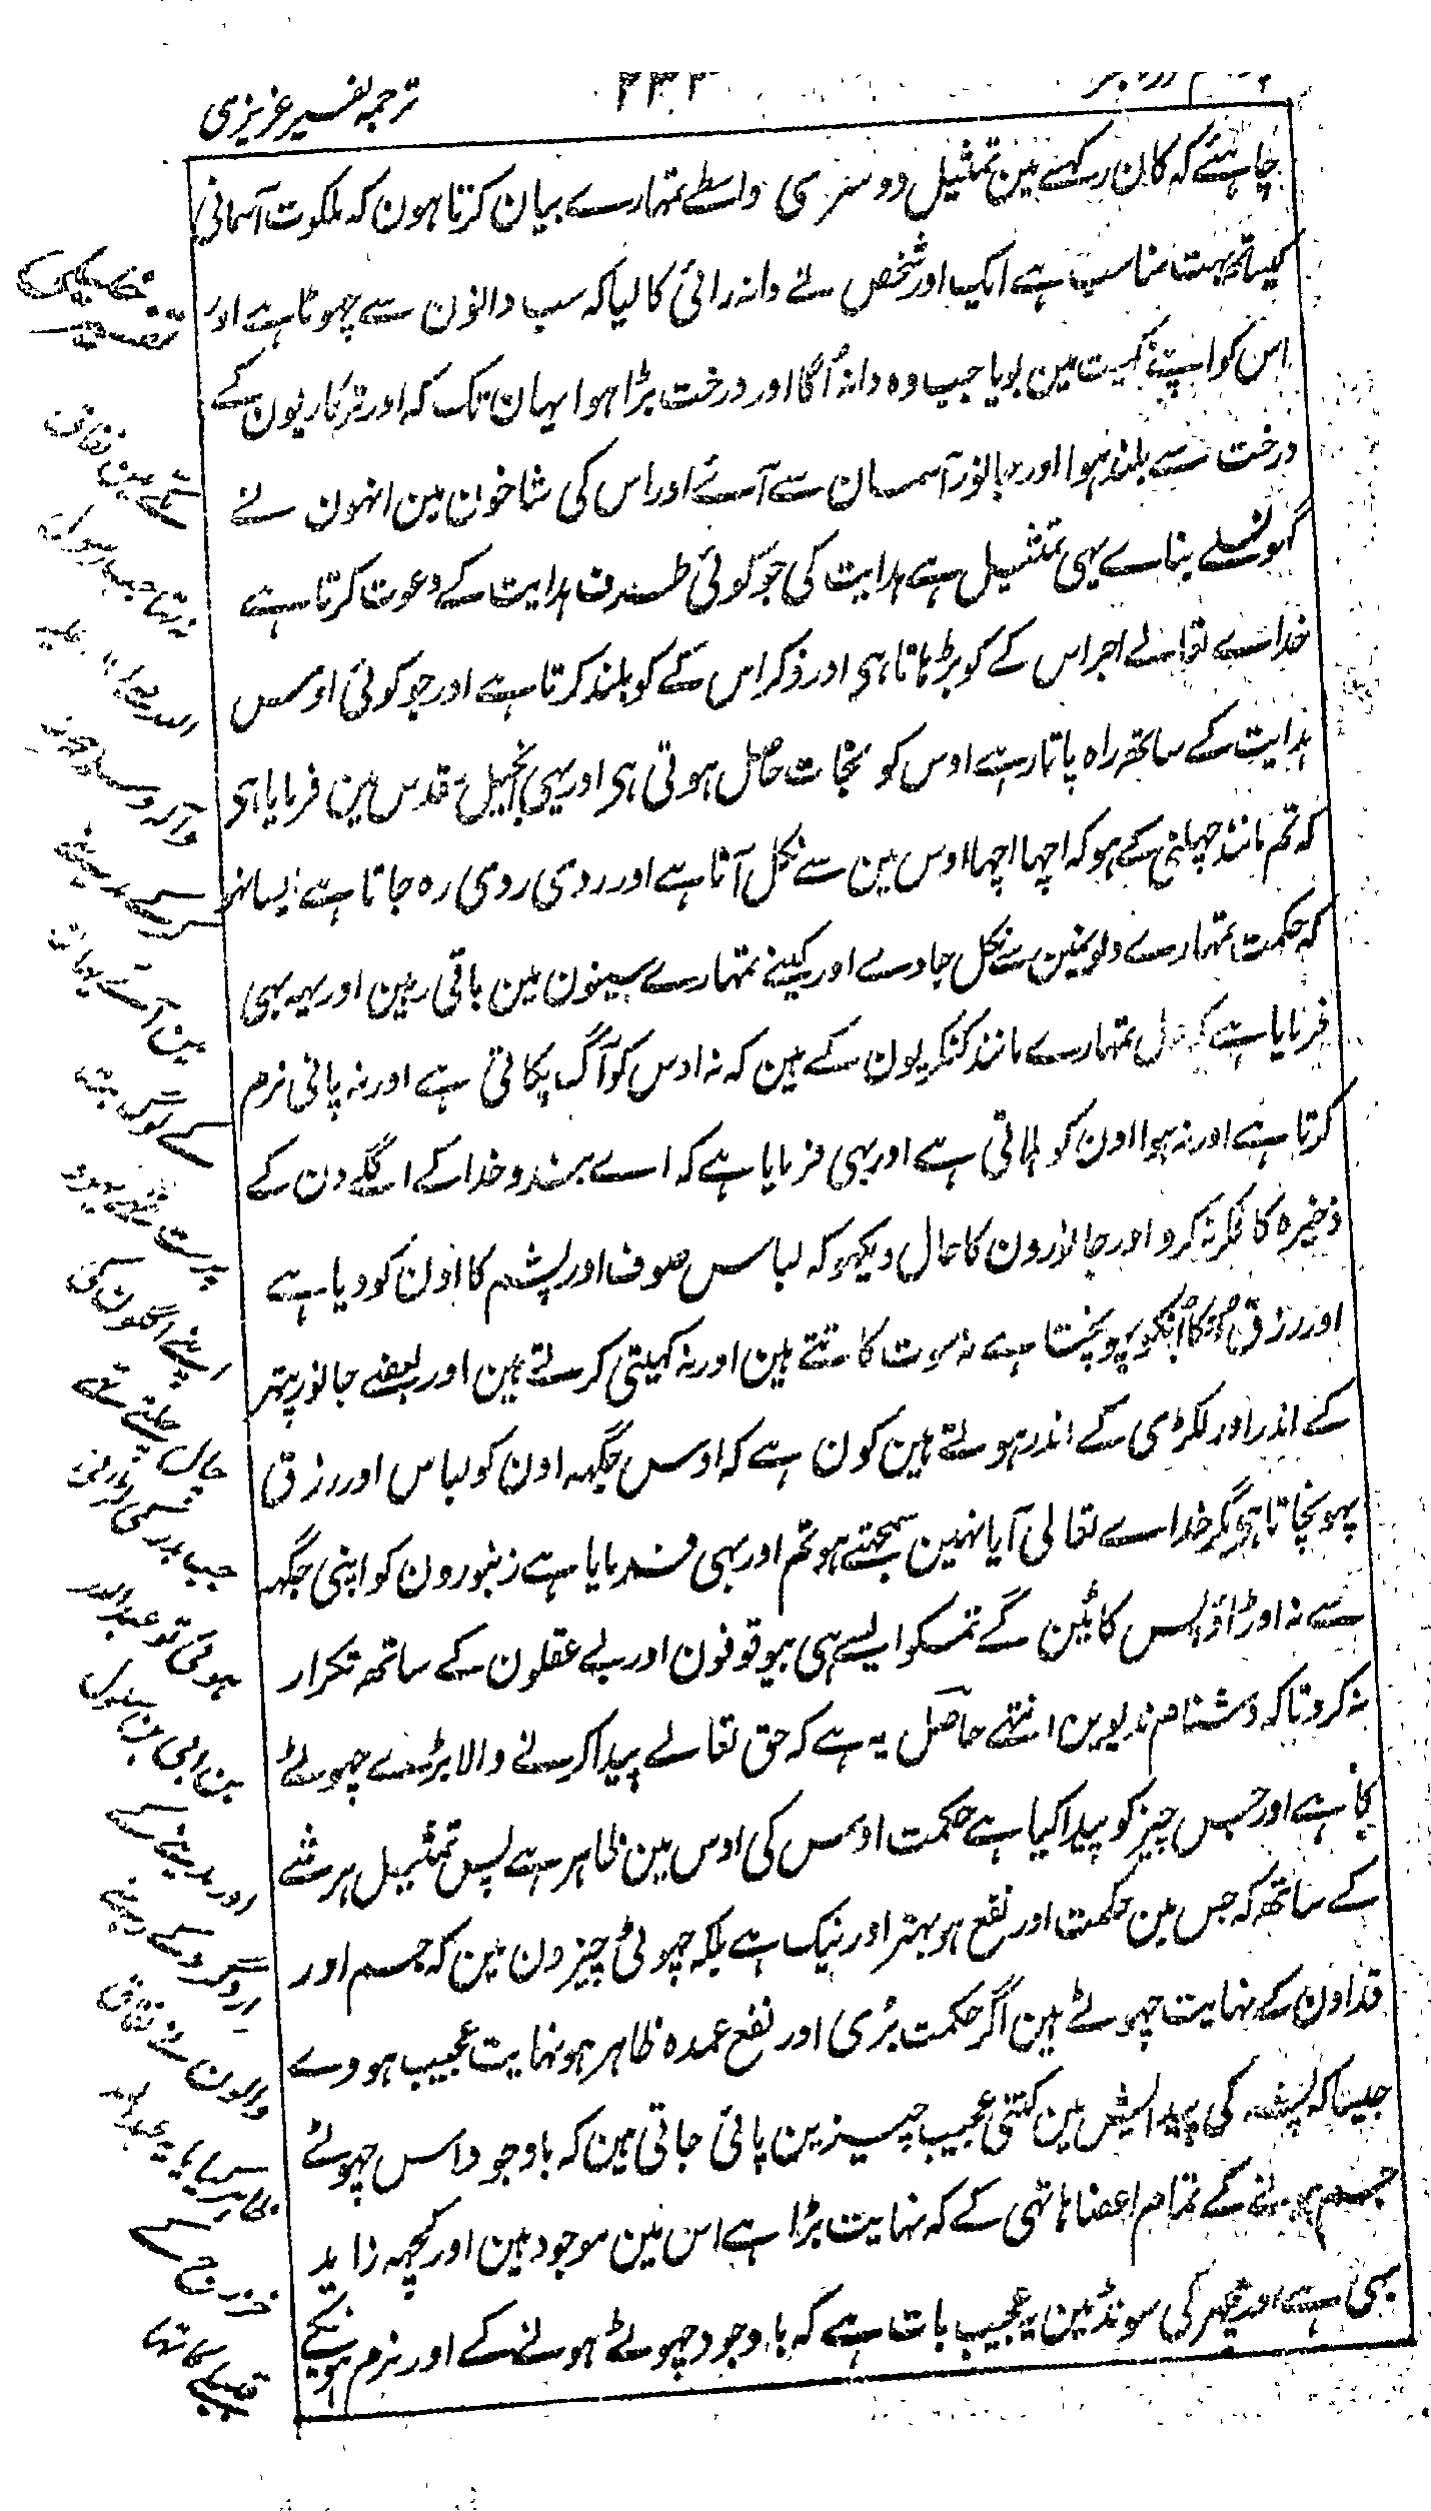 ترجمہ تفسیر عزیزی
۲۳۲
چاہئے کہ کان رکہے مین تمثیل دوسری واسطے تمہارے بیان کرتا ہون کہ ملکوت آسمانی
کیساتھ بہت مناسب ہے ایک اور شخص نے دانہ رائی کا لیا کہ سب دانون سے چہوٹا ہے اور
اس کو اپنے کہیت مین بویا جب وہ دانہ اُگا اور درخت بڑا ہوا یہان تک کہ اور ترکاریون کے
درخت سے بلند ہوا اور جانور آسمان سے آئے اور اس کی شاخون مین انہون نے
گہونسلے بناے یہی تمثیل ہے ہدایت کی جو کوئی طرف ہدایت کے دعوت کرتا ہے
خداے تعالے اجر اس کے کو بڑہاتا ہی اور ذکر اس کے کو بلند کرتا ہے اور جو کوئی اوس
ہدایت کے ساتھ راہ پاتا ہے اوس کو نجات حاصل ہوتی ہی اور یہی انجیل مقدس مین فرمایا ہی
کہ تم مانند چہلنی کے ہو کہ اچہا اچہا اوس مین سے نکل آتا ہے اور ردی ردی رہ جاتا ہے ایسا نہو
کہ حکمت تمہارے دلونمین سے نکل جاوے اور کینے تمہارے سینون مین باقی رہین اور یہہ بہی
فرمایا ہے کہ دل تمہارے مانند کنکریون کے ہین کہ نہ اوس کو آگ پکاتی ہے اور نہ پانی نرم
کرتا ہے اور نہ ہوا اون کو ہلاتی ہے اور بہی فرمایا ہے کہ اے بندو خدا کے اگلے دن کے
ذخیرہ کا فکر نہ کرو اور جانورون کا حال دیکہو کہ لباس صوف اور پشم کا اون کو دیا ہے
اور رزق انکا انکو پہونچتا ہے نہ سوت کاتتے ہین اور نہ کہیتی کرتے ہین اور بعضے جانور پتہر
کے اندر اور لکڑی کے اندر ہوتے ہین کون ہے کہ اوس جگہہ اون کو لباس اور رزق
پہونچاتا ہی مگر خداے تعالی آیا نہین سمجہتے ہو تم اور بہی فرمایا ہے زنبورون کو اپنی جگہہ
سے نہ اوڑاؤ پس کاٹین گے تمکو ایسے ہی بیوقوفون اور بے عقلون کے ساتھ تکرار
نہ کرو تاکہ دشنام ندیوین انتہے حاصل یہ ہے کہ حق تعالے پیدا کرنے والا بڑے چہوٹے
کا ہے اور جس چیز کو پیدا کیا ہے حکمت اوس کی اوس مین ظاہر ہے پس تمثیل ہر شے
کے ساتھ کہ جس مین حکمت اور نفع ہو بہتر اور نیک ہے بلکہ چہوٹی چیزون مین کہ جسم اور
قد اون کے نہایت چہوٹے ہین اگر حکمت بڑی اور نفع عمدہ ظاہر ہو نہایت عجیب ہووے
جیسا کہ پشہ کی پیدایش مین کتنی عجیب چیزین پائی جاتی ہین کہ باوجود اس چہوٹے
جسم ہونے کے تمام اعضا ہاتہی کے کہ نہایت بڑا ہے اس مین موجود ہین اور کچہہ زاید
بہی ہے اور مچہر کی سونڈ مین یہ عجیب بات ہے کہ باوجود چہوٹے ہونے کے اور نرم ہونیکے
جب
ہوئی تو عبد اللہ
بن ابی بن سلول
اور مدینے کے
والون نے نفاق
خزرج کے
قبیلے کا تہا